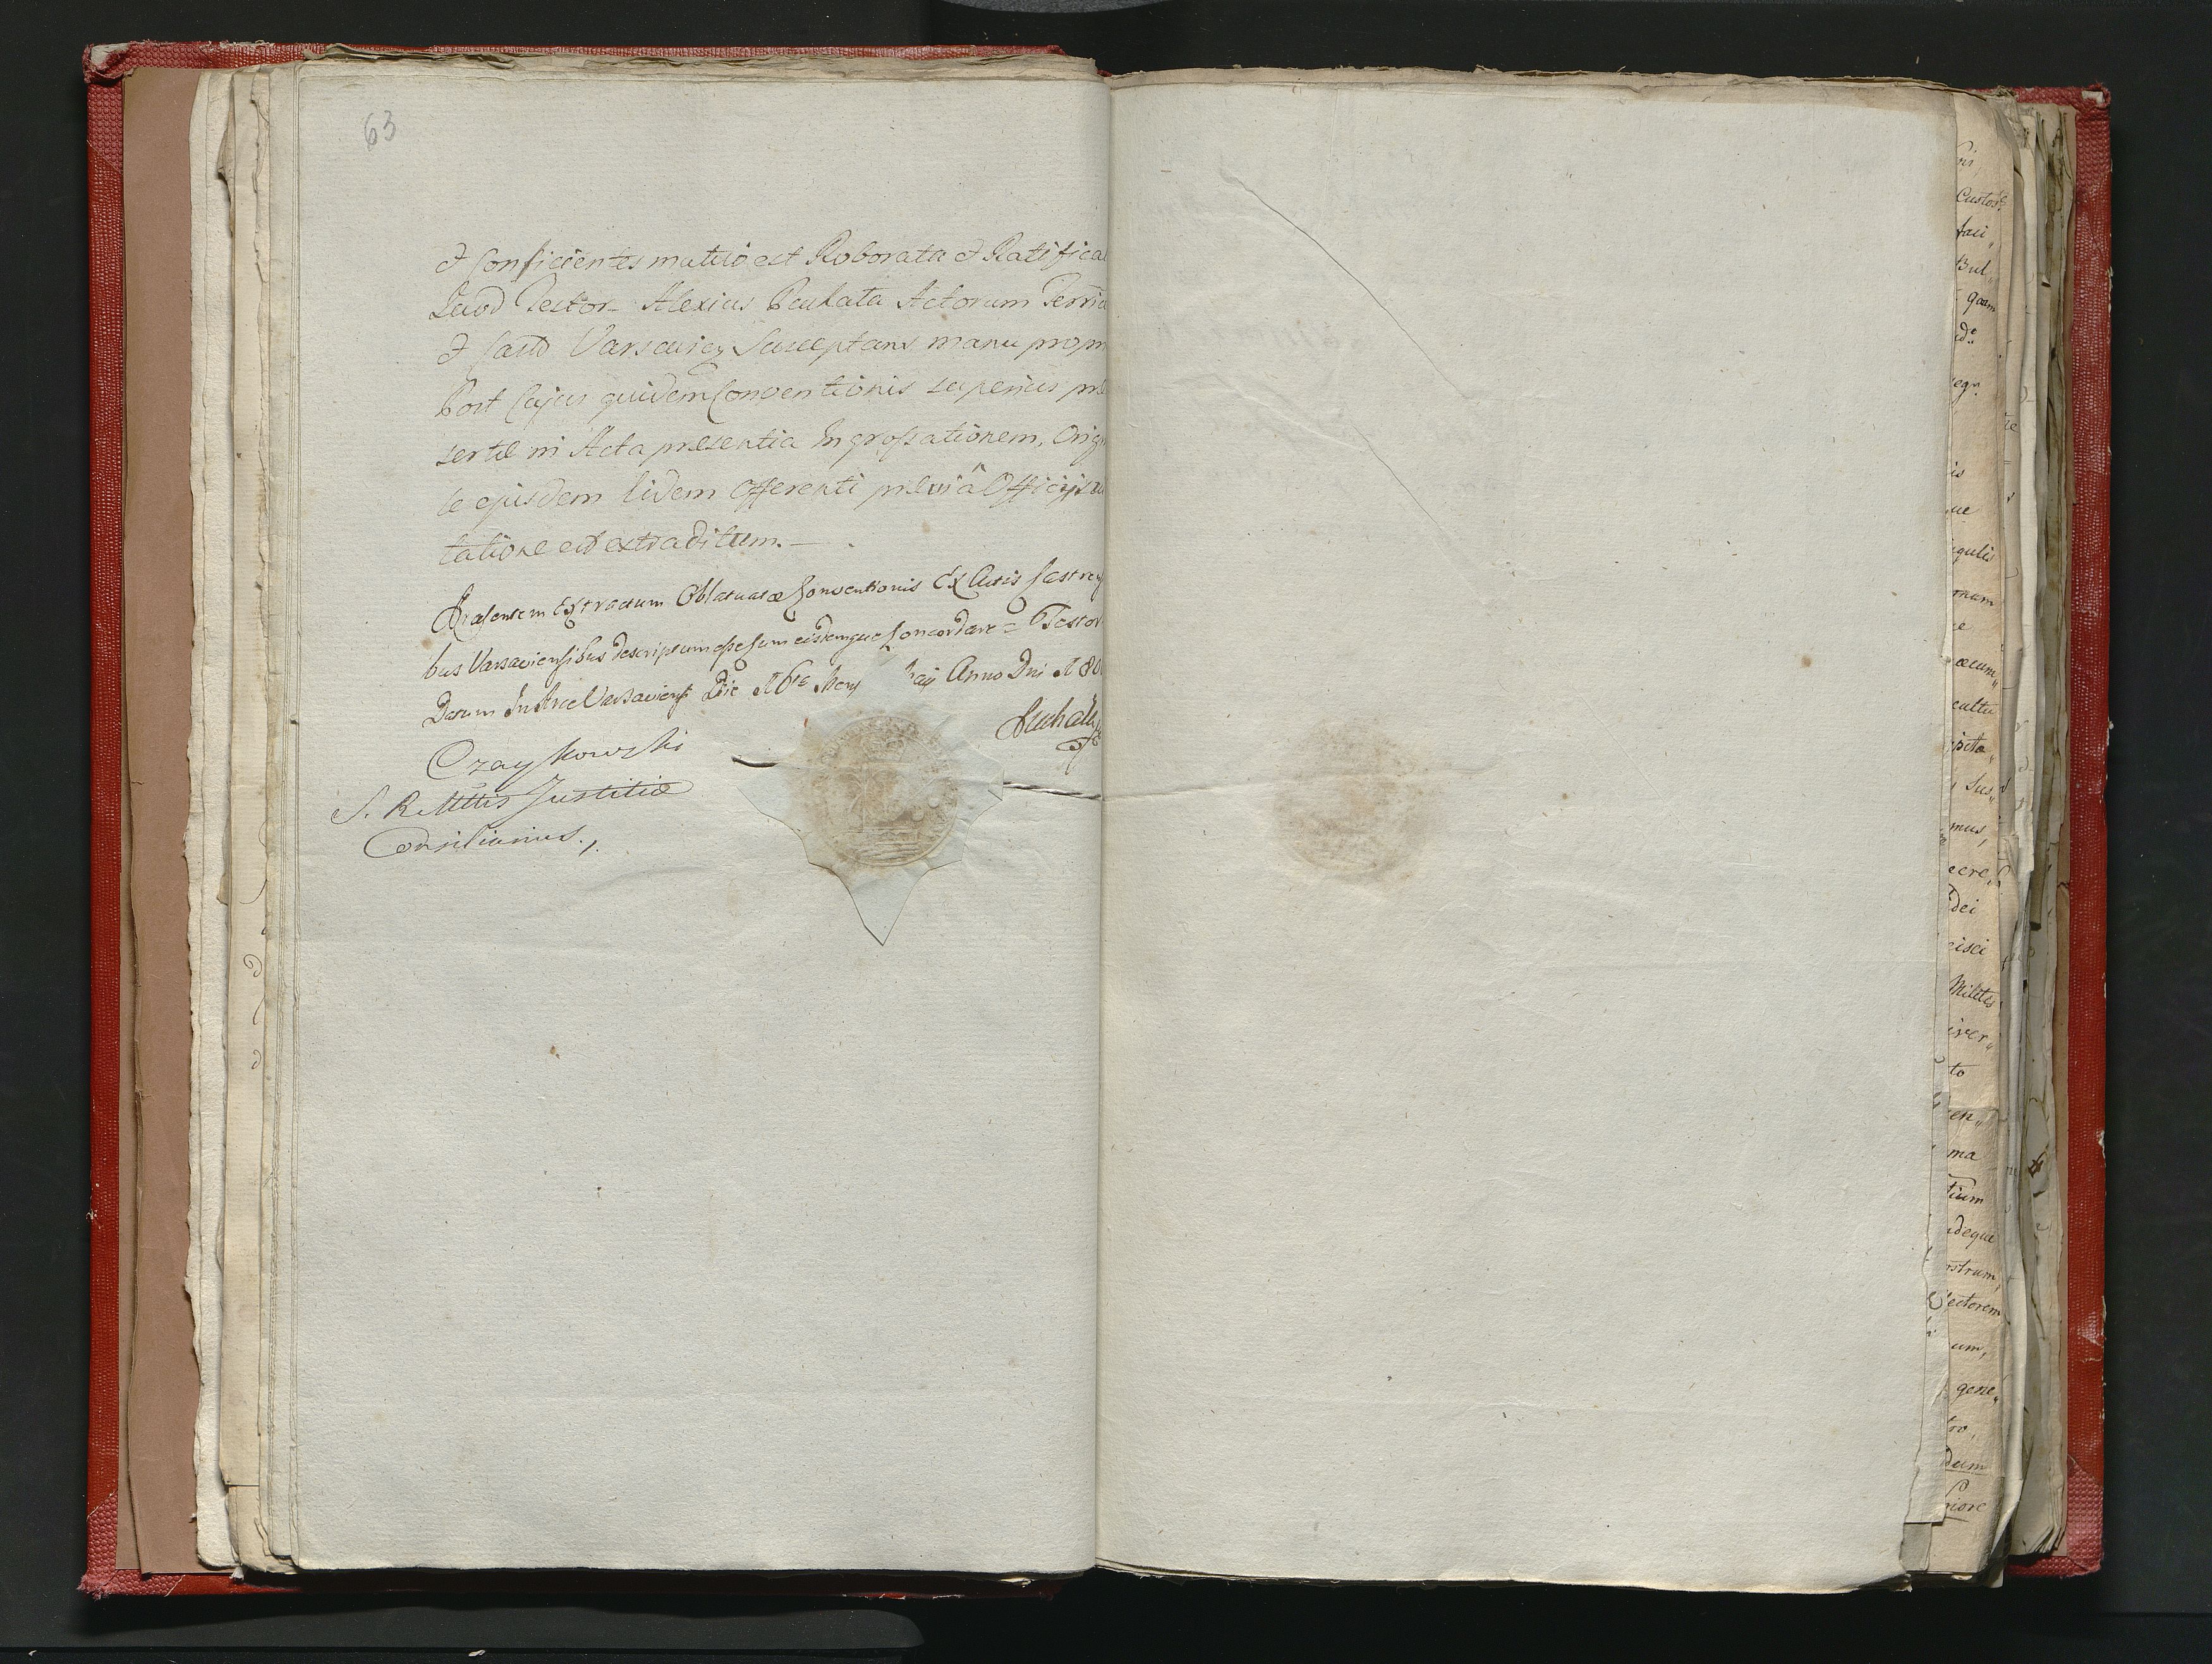 63
et Conficientes mutuo est Roborata et Ratifica
Quod Testor – Alexius Puchała Actorum Terrie
et Castr Varsavien Susceptans manu prop
Post Cujus quidem Conventionis superius præ
sertæ in Acta præsentia Ingrossationem, Orig
le ejusdem Eidem Offerenti præviâ Officij
tatione est extraditum. –
Præsentem Extractum Oblatuatæ Conventionis Ex Actis Castren
bus Varsaviensibus descriptum esse cum eisdemque Concordare = Testor
Datum In Arce Varsaviensi Die 16ta Mens Maij Anno Dni 180
Puchała
Czaykowski
S. R. Mttis Justitiæ
Consiliarius.
ni,
Custos
faci„
Bul„
quam
is
ue
igulis
mum
ne
æcum„
cultu
, Sus„
mus,
ecre„
dei
cisci
Milites
iver„
to
en„
ma
tium
adeque
strum,
lectorem
um,
gene„
tro,
dum
riore